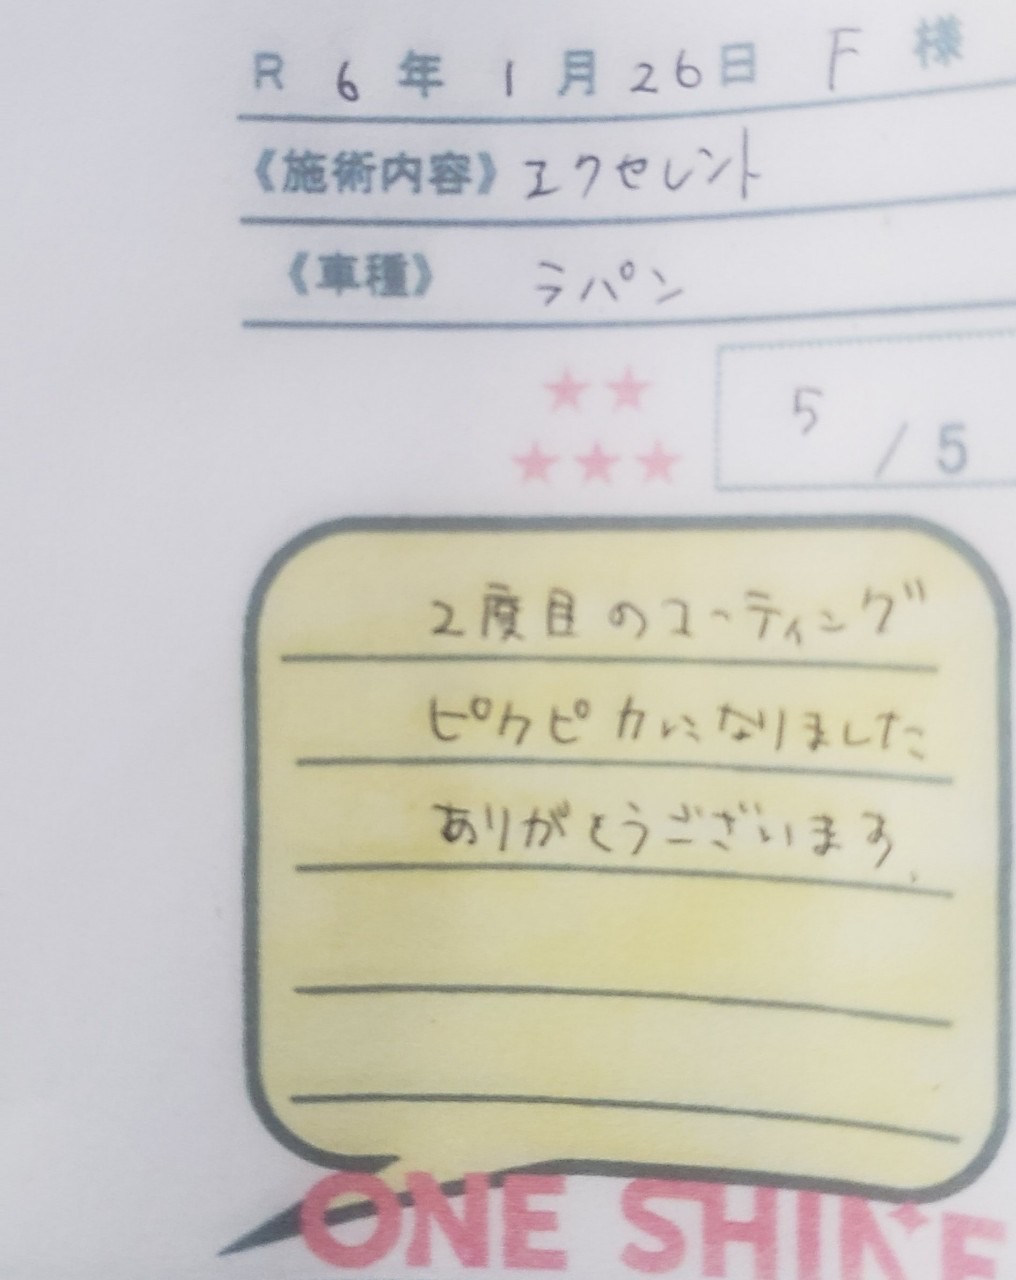 R 6 年 1 月 26 日 F 様
《施術内容》エクセレント
《車種》 ラパン
★★
★★★
5 / 5
2度目のコーティング
ピカピカになりました
ありがとうございます.
ONE SHINE